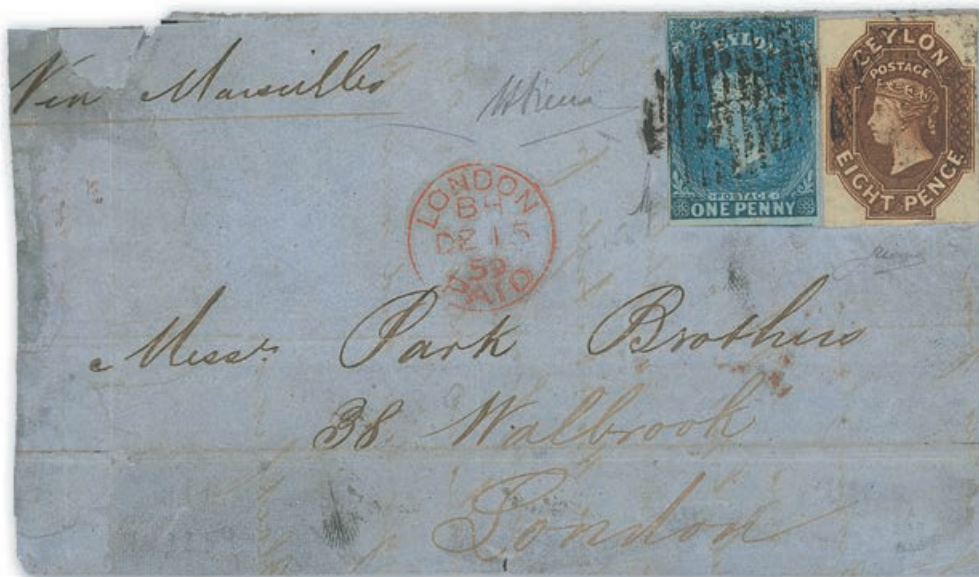 Via Marseilles
CEYLON
POSTAGE
ONE PENNY
CEYLON
POSTAGE
EIGHT PENCE
LONDON
BH
DE 15
59
PAID
Messrs Park Brothers
38 Walbrook
London